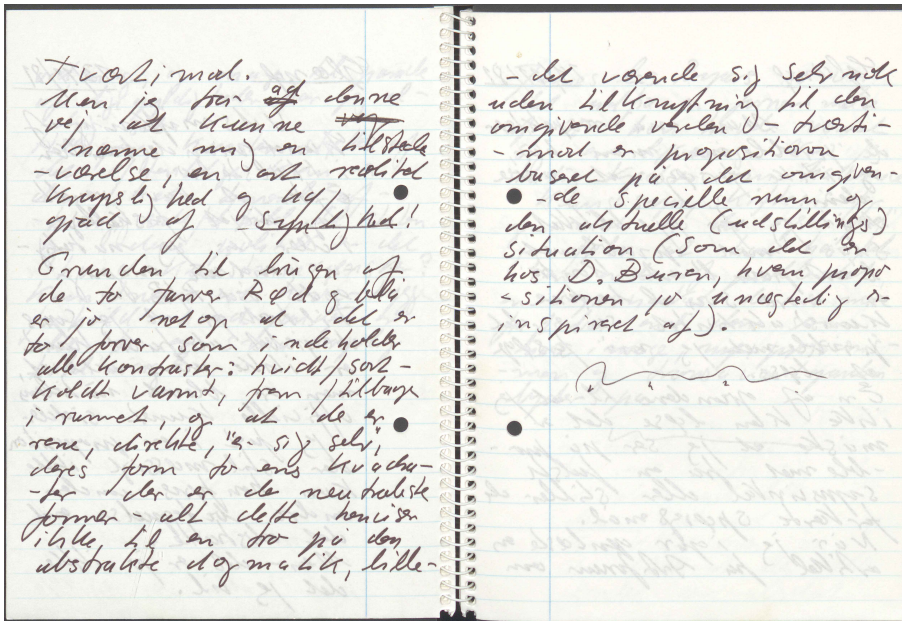 Tværtimod.
Men jeg tror ad denne
vej at kunne
nærme mig en tilstede-
-værelse, en art realitet
kropslighed og høj
grad af -synlighed!
Grunden til brugen af
de to farver Rød og blå
er jo netop at det er
to farver som indeholder
alle kontraster: hvidt/sort-
koldt varmt, frem/tilbage
i rummet, og at de er
rene, direkte, "er sig selv",
deres form to ens kvadra-
-ter der er de neutraleste
former - alt dette henviser
ikke til en tro på den
abstrakte dogmatik, bille-
- det værende sig selv nok
uden tilknytning til den
omgivende verden - tværti-
-mod er propositionen
baseret på det omgiven-
-de specielle rum og
den aktuelle (udstillings)
situation (som det er
hos D. Buren, hvem propo
-sitionen jo unægtelig er
inspireret af).